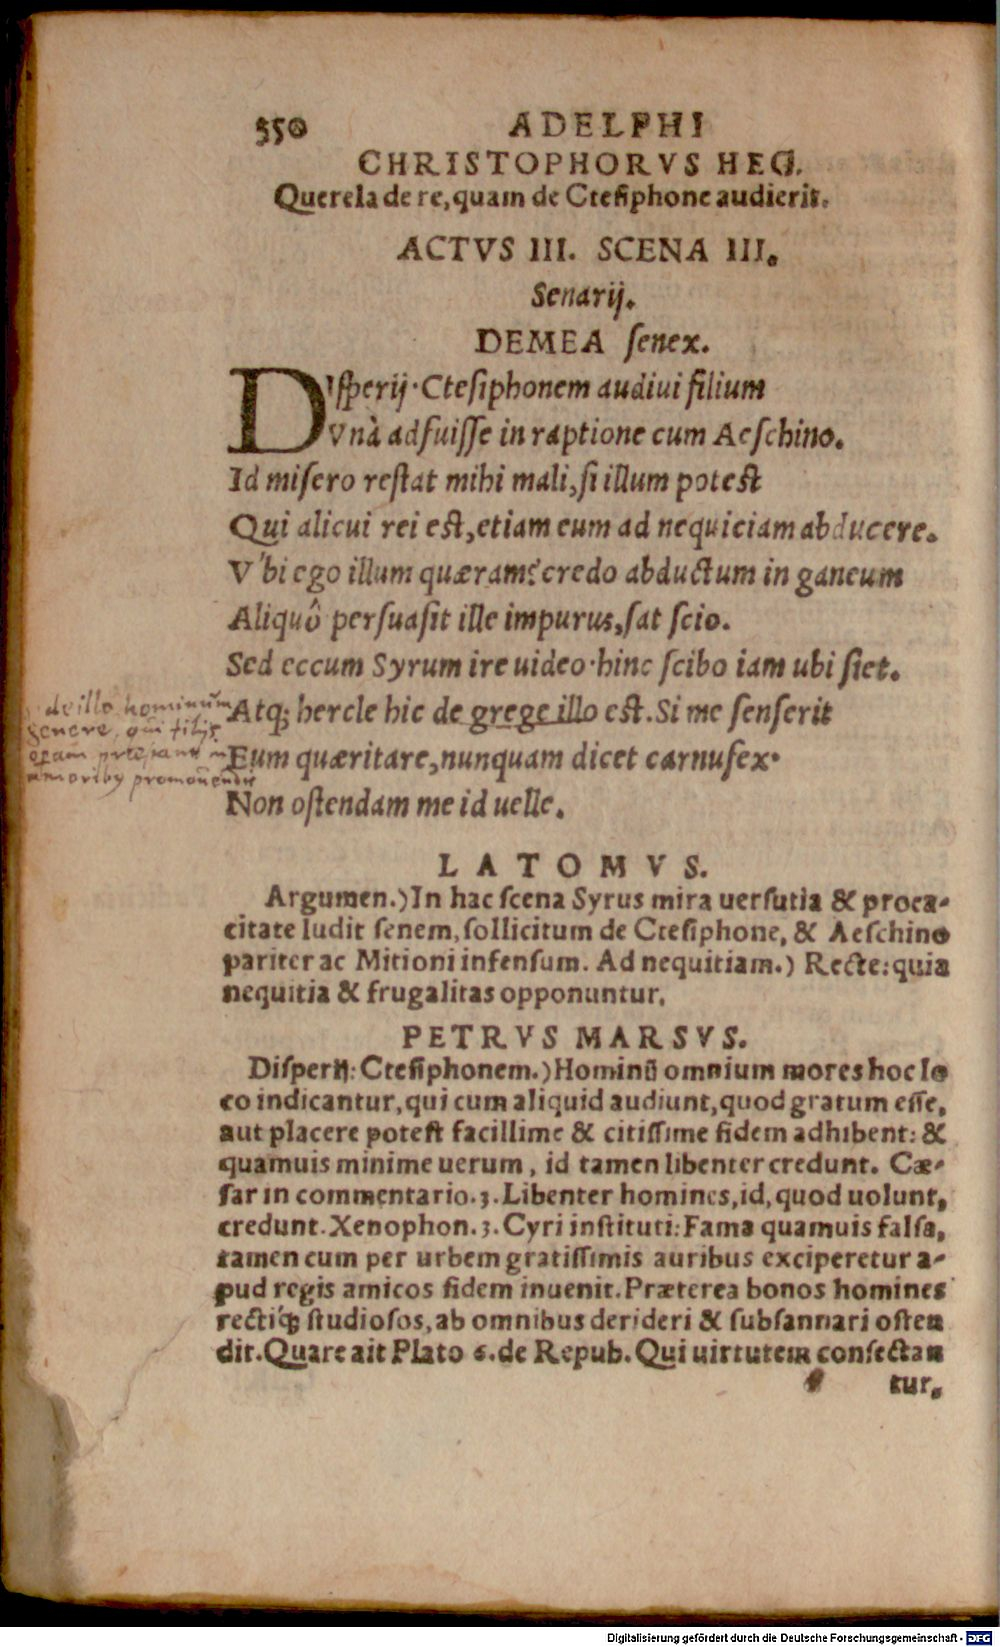 350 ADELPHI
CHRISTOPHORVS HEG.
Querela de re, quam de Ctesiphone audierit.
ACTVS III. SCENA III.
Senarij.
DEMEA ſenex.
Diſperij· Cteſiphonem audiui filium
Vnà adfuiſſe in raptione cum Aeſchino.
Id miſero reſtat mihi mali, ſi illum poteſt
Qui alicui rei eſt, etiam eum ad nequiciam abducere.
Vbi ego illum quæram? credo abductum in ganeum
Aliquô perſuaſit ille impurus, ſat ſcio.
Sed eccum Syrum ire uideo· hinc ſcibo iam ubi ſiet.
Atq; hercle hic de grege illo eſt. Si me ſenſerit
Eum quæritare, nunquam dicet carnufex·
Non oſtendam me id uelle.
de illo hominum
genere, qui filijs
operam
amoribus promouendis
LATOMVS.
Argumen.) In hac ſcena Syrus mira uerſutia & proca-
citate ludit ſenem, ſollicitum de Cteſiphone, & Aeſchino
pariter ac Mitioni infenſum. Ad nequitiam.) Recte: quia
nequitia & frugalitas opponuntur.
PETRVS MARSVS.
Diſperij: Cteſiphonem.) Hominū omnium mores hoc lo
co indicantur, qui cum aliquid audiunt, quod gratum eſſe,
aut placere poteſt facillime & citiſſime fidem adhibent: &
quamuis minime uerum, id tamen libenter credunt. Cæ-
ſar in commentario. 3. Libenter homines, id, quod uolunt,
credunt. Xenophon. 3. Cyri inſtituti: Fama quamuis falſa,
tamen cum per urbem gratiſſimis auribus exciperetur a-
pud regis amicos fidem inuenit. Præterea bonos homines
rectiq́; ſtudioſos, ab omnibus derideri & ſubſannari oſten
dit. Quare ait Plato 6. de Repub. Qui uirtutem conſectan
tur.
Digitalisierung gefördert durch die Deutsche Forschungsgemeinschaft - DFG